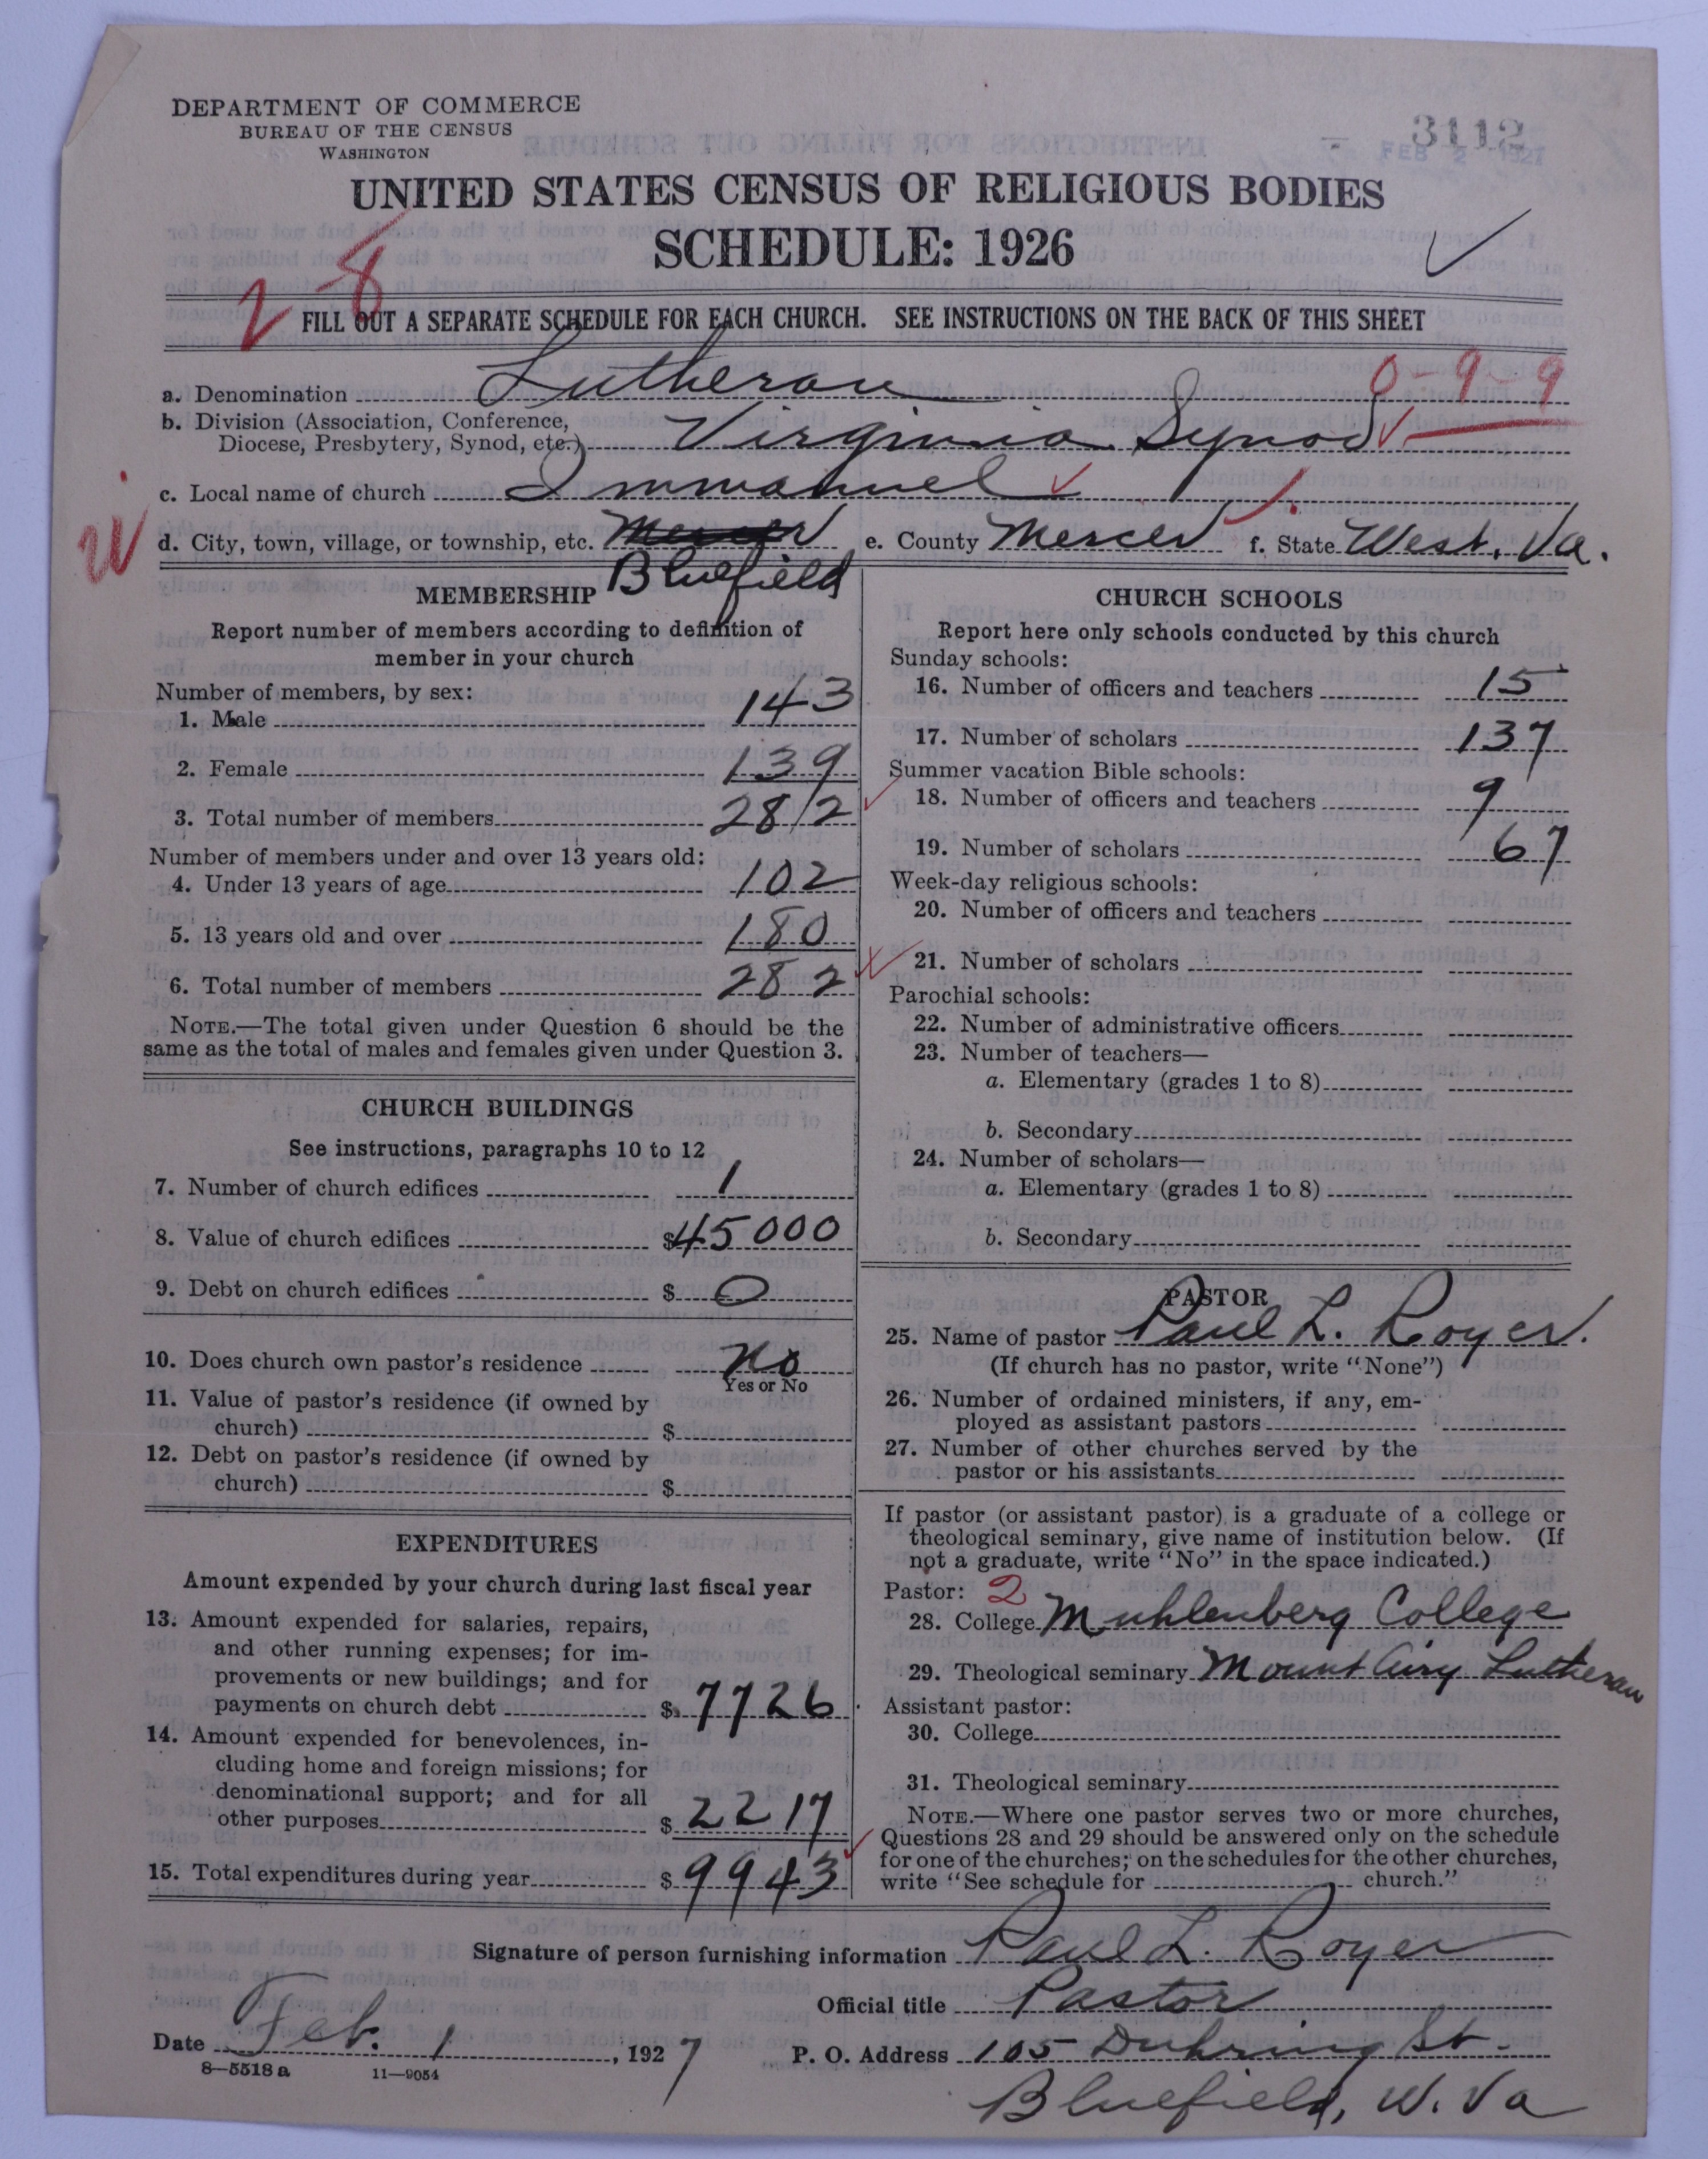 DEPARTMENT OF COMMERCE
BUREAU OF THE CENSUS
WASHINGTON
3112
FEB 2 1927
UNITED STATES CENSUS OF RELIGIOUS BODIES
SCHEDULE: 1926
2-8
FILL OUT A SEPARATE SCHEDULE FOR EACH CHURCH. SEE INSTRUCTIONS ON THE BACK OF THIS SHEET
0-9-9
a. Denomination Lutheran
b. Division (Association, Conference,
Diocese, Presbytery, Synod, etc.) Virginia Synod
c. Local name of church Immanuel
W
d. City, town, village, or township, etc. Mercer Bluefield e. County Mercer f. State West. Va.
MEMBERSHIP
Report number of members according to definition of
member in your church
Number of members, by sex:
1. Male 143
2. Female 139
3. Total number of members 282
Number of members under and over 13 years old:
4. Under 13 years of age 102
5. 13 years old and over 180
6. Total number of members 282
NOTE.—The total given under Question 6 should be the
same as the total of males and females given under Question 3.
CHURCH BUILDINGS
See instructions, paragraphs 10 to 12
7. Number of church edifices 1
8. Value of church edifices $45000
9. Debt on church edifices $ 0
10. Does church own pastor's residence No
Yes or No
11. Value of pastor's residence (if owned by
church) $
12. Debt on pastor's residence (if owned by
church) $
EXPENDITURES
Amount expended by your church during last fiscal year
13. Amount expended for salaries, repairs,
and other running expenses; for im-
provements or new buildings; and for
payments on church debt $ 7726
14. Amount expended for benevolences, in-
cluding home and foreign missions; for
denominational support; and for all
other purposes $ 2217
15. Total expenditures during year $ 9943
CHURCH SCHOOLS
Report here only schools conducted by this church
Sunday schools:
16. Number of officers and teachers 15
17. Number of scholars 137
Summer vacation Bible schools:
18. Number of officers and teachers 9
19. Number of scholars 67
Week-day religious schools:
20. Number of officers and teachers
21. Number of scholars
Parochial schools:
22. Number of administrative officers
23. Number of teachers—
a. Elementary (grades 1 to 8)
b. Secondary
24. Number of scholars—
a. Elementary (grades 1 to 8)
b. Secondary
PASTOR
25. Name of pastor Paul L. Royer.
(If church has no pastor, write "None")
26. Number of ordained ministers, if any, em-
ployed as assistant pastors
27. Number of other churches served by the
pastor or his assistants
If pastor (or assistant pastor) is a graduate of a college or
theological seminary, give name of institution below. (If
not a graduate, write "No" in the space indicated.)
Pastor: 2
28. College Muhlenberg College
29. Theological seminary Mount Airy Lutheran
Assistant pastor:
30. College
31. Theological seminary
NOTE.—Where one pastor serves two or more churches,
Questions 28 and 29 should be answered only on the schedule
for one of the churches; on the schedules for the other churches,
write "See schedule for church."
Signature of person furnishing information Paul L. Royer
Official title Pastor
Date Feb. 1, 1927 P. O. Address 105 Duhring St.
Bluefield, W. Va
8—5518 a 11—9054